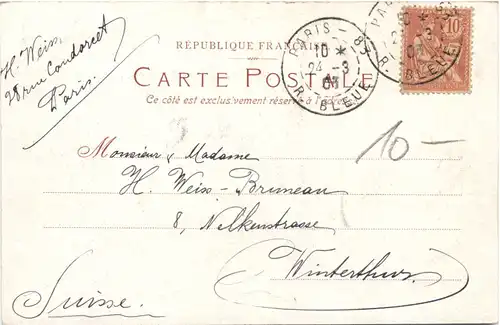 H. Weiss,
28 rue Condorcet
Paris.
RÉPUBLIQUE FRANÇAISE
CARTE POSTALE
Ce côté est exclusivement réservé
PARIS - 8
10 *
24 - 3
01
R. BLEUE
10
R. BLEUE
10 -
Monsieur & Madame
H. Weiss-Bruneau
8, Nelkenstrasse
Winterthur.
Suisse.